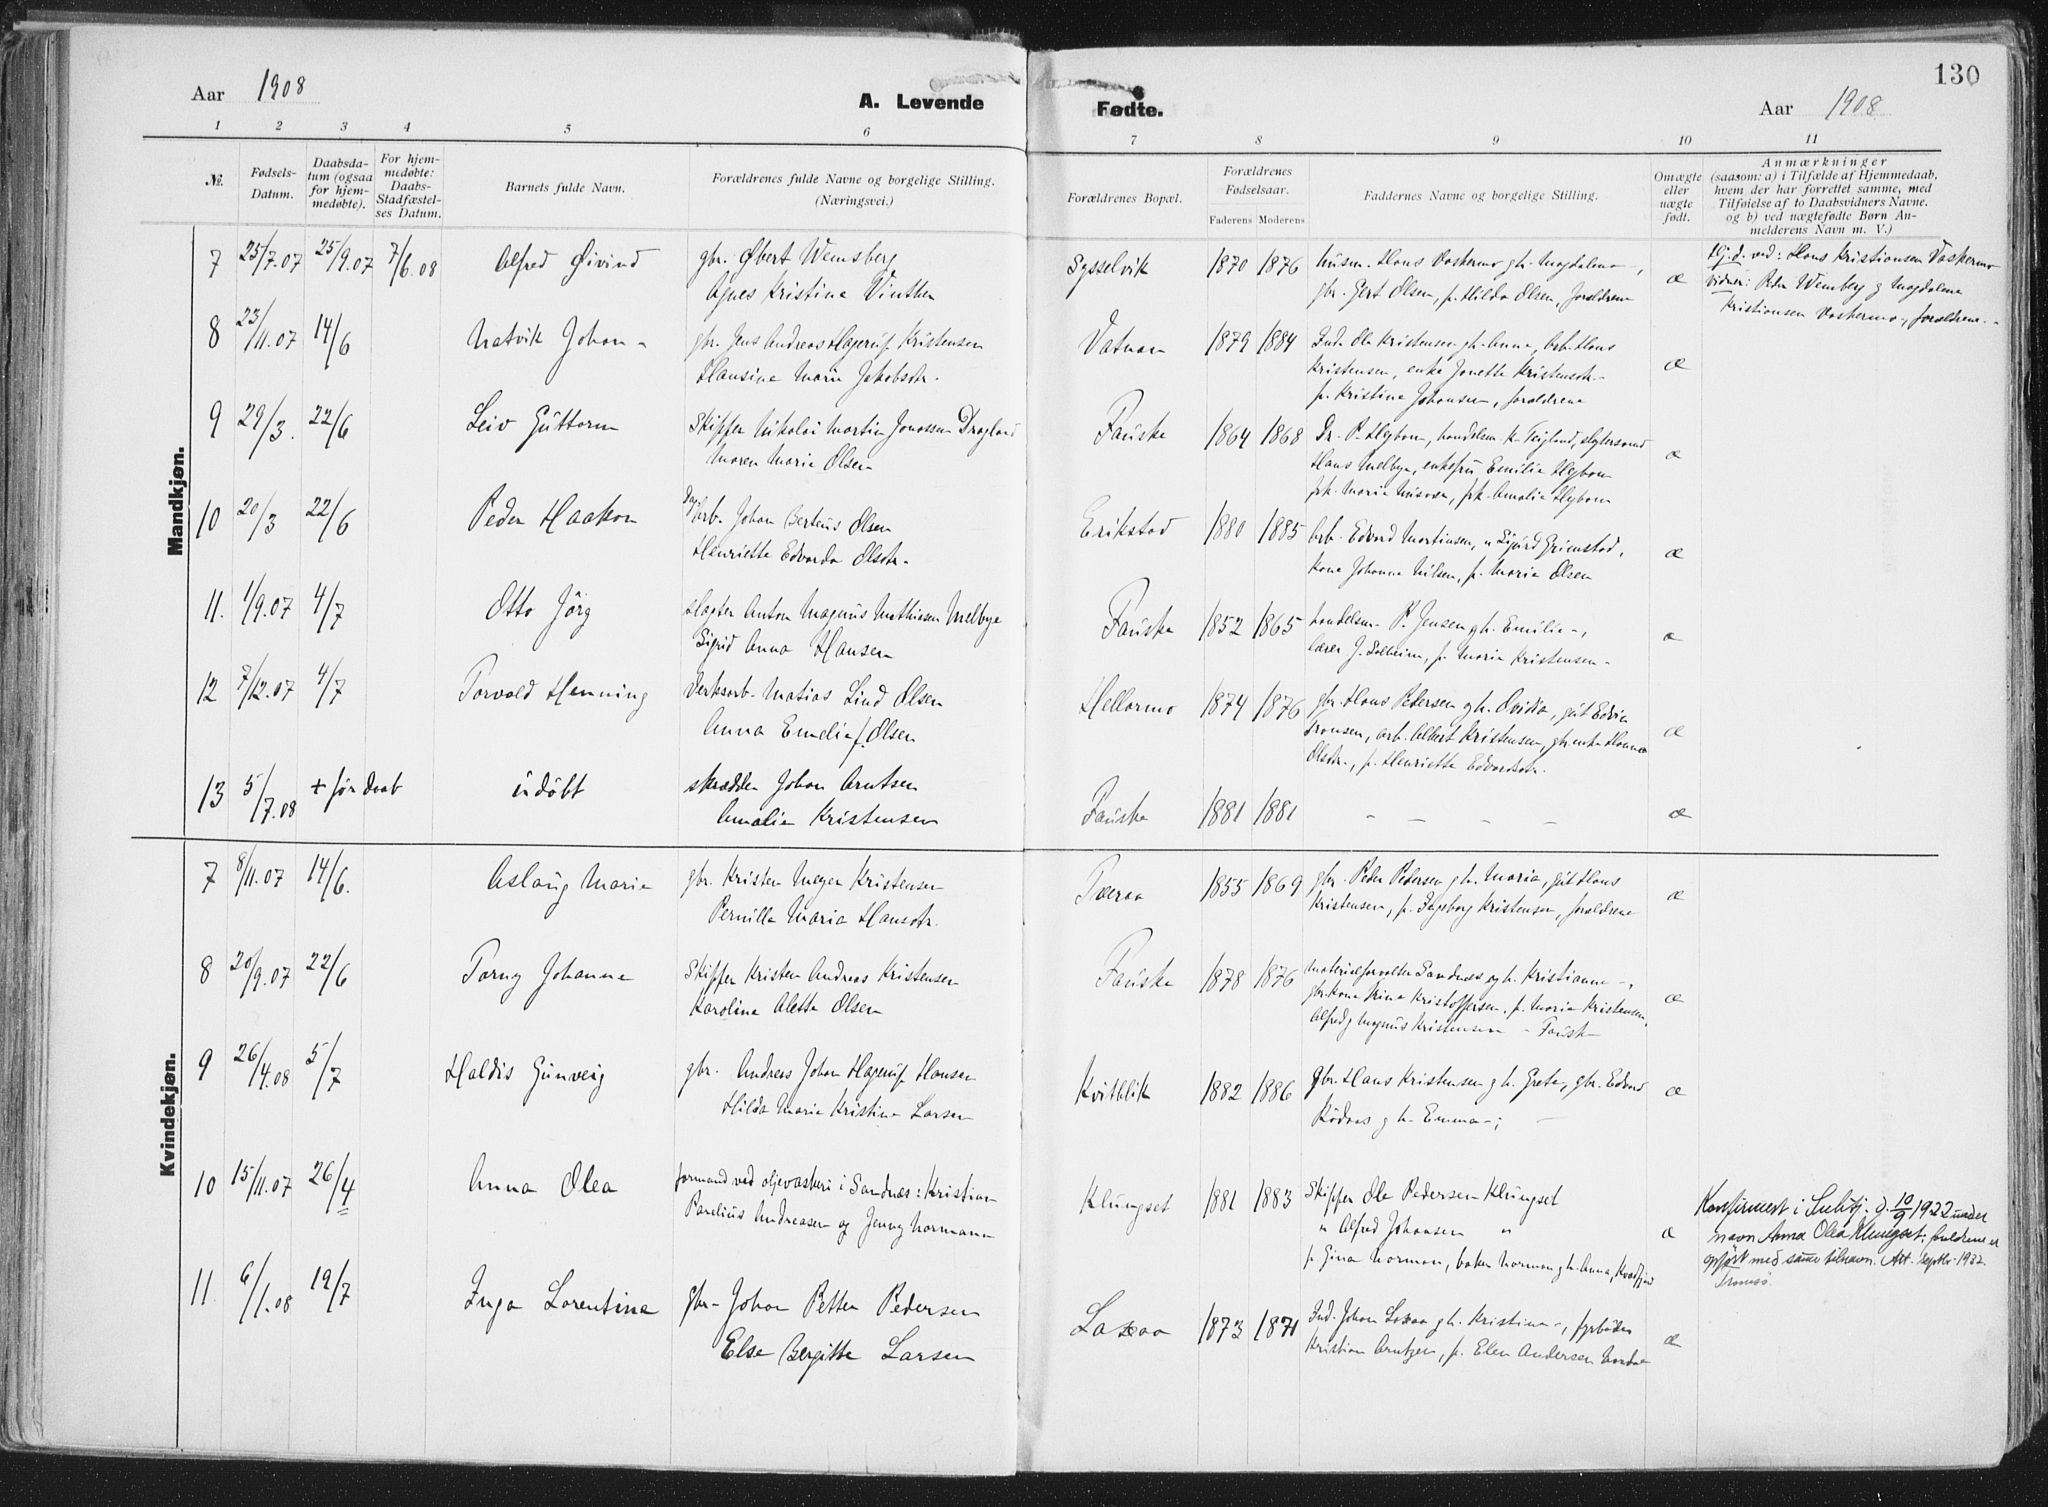 130
Aar 1908
A. Levende Fødte.
Aar 1908
1 2 3 4 5 6 7 8 9 10 11
№.
Fødsels-Datum.
Daabsdatum (ogsaa for hjemmedøbte).
For hjemmedøbte: Daabs-Stadfæstelses Datum.
Barnets fulde Navn.
Forældrenes fulde Navne og borgelige Stilling. (Næringsvei.)
Forældrenes Bopæl.
Forældrenes Fødselsaar.
Faderens Moderens
Faddernes Navne og borgelige Stilling.
Omægte eller uægte født.
Anmærkninger (saasom: a) i Tilfælde af Hjemmedaab, hvem der har forrettet samme, med Tilføielse af to Daabsvidners Navne. og b) ved uægtefødte Børn Anmelderens Navn m. V.)
Mandkjøn.
7 25/7.07 25/9.07 7/6.08 Alfred Øivind gbr. Øbert Wemsberg
Agnes Kristine Vinther
Sysselvik 1870 1876 husm. Hans Vaskermo gh. Magdalena -,
gbr. Gert Olsen, p. Hilda Olsen, forældrene
æ
Hj. d. ved: Hans Kristiansen Vaskermo
vidner: Peder Wemberg g Magdalene
Kristiansen Vaskermo, forældrene.
8 23/11.07 14/6 Natvik Johan gbr. Jens Andreas Hagerup Kristensen
Hansine Marie Jakobsdtr.
Vatnan 1879 1884 Ind. Ole Kristensen gh. Anna, Arb. Hans
Kristensen, enke Jonette Kristensdtr
p. Kristine Johansen, forældrene
æ
9 29/3. 22/6 Leiv Guttorm Skipper Nikolai Martin Jonassen Dragland
Maren Marie Olsen
Fauske 1864 1868 Dr. P. Hegbom, handelsm. K. Teigland,
Hans Melbye, enkefru Emilie Hegbom
frk. Marie, frk. Amalie Hegbom
æ
10 20/3 22/6 Peder Haakon Dagarb. Johan Berteus Olsen
Henriette Edvarda Olsdtr.
Erikstad 1880 1885 Arb. Edvard Martinsen, " Sigurd Grimstad,
Kone Johanna Nilsen, p. Marie Olsen
æ
11. 1/9.07 4/7 Otto Jörg Anton Magnus Mathiesen Melbye
Sigrid Anna Hansen
Fauske 1852 1865 handelsm. P. Jensen gh. Emilie -,
lærer J. Solheim, p. Marie Kristensen
æ
12 7/12.07 4/7 Torvald Henning Verksarb. Matias Lind Olsen
Anna Emelie f. Olsen
Hellarmo 1874 1876 gbr. Hans Pedersen gh. Ovidia, gut Edvin
Fransen, arb. Albert Kristensen, gbr.enke Hanna
Olsdtr, p. Henriette Edvardsdtr.
æ
13 5/7.08 + før Daab udöbt skrædder Johan Arntsen
Amalie Kristensen
Fauske 1881 1881 - - - - æ
Kvindekjøn.
7 8/11.07 14/6. Aslaug Marie gbr. Kristen Meyer Kristensen
Pernilla Maria Hansdtr.
Tveraa 1855 1869 gbr. Peder Pedersen gh. Maria, gut Hans
Kristensen, p. Ingeborg Kristensen, forældrene
æ
8 20/9.07 22/6 Torny Johanne Skipper Kristen Andreas Kristensen
Karoline Aletta Olsen
Fauske 1878 1876 Materialforvalter Sandnæs og h. Kristianne -,
gbr.kone Trine Kristoffersen, p. Marie Kristensen,
Alfred g Magnus Kristensen - Fausk
æ
9 26/4.08 5/7 Haldis Gunveig gbr. Andreas Johan Hagerup Hansen
Hilda Marie Kristine Larsen
Kvitblik 1882 1886 Gbr. Hans Kristensen g h. Grete, gbr. Edvard
Rödaas g h. Emma -;
æ
10 15/11.07 26/4 Anna Olea formand ved oljevaskeri i Sandnæs: Kristian
Parelius Andreassen og Jenny Normann
Klungset 1881 1883 Skipper Ole Pedersen Klungset
" Alfred Johansen "
p. Gina Norman, baker Norman gh. Anna,
æ
Konfirmert i Sulitj. d. 10/9 1922 under
navn Anna Olea Klungset; forældrene er
opført med samme tilnavn. Att. septbr. 1922.
Tromsö.
11. 6/1.08 19/7 Inga Lorentine gbr. Johan Petter Pedersen
Else Bergitte Larsen
Laxaa 1873 1871 Ind. Johan Laxaa gh. Kristine -, fyrböder
Kristian Arntzen, p. Elen Andersen
æ